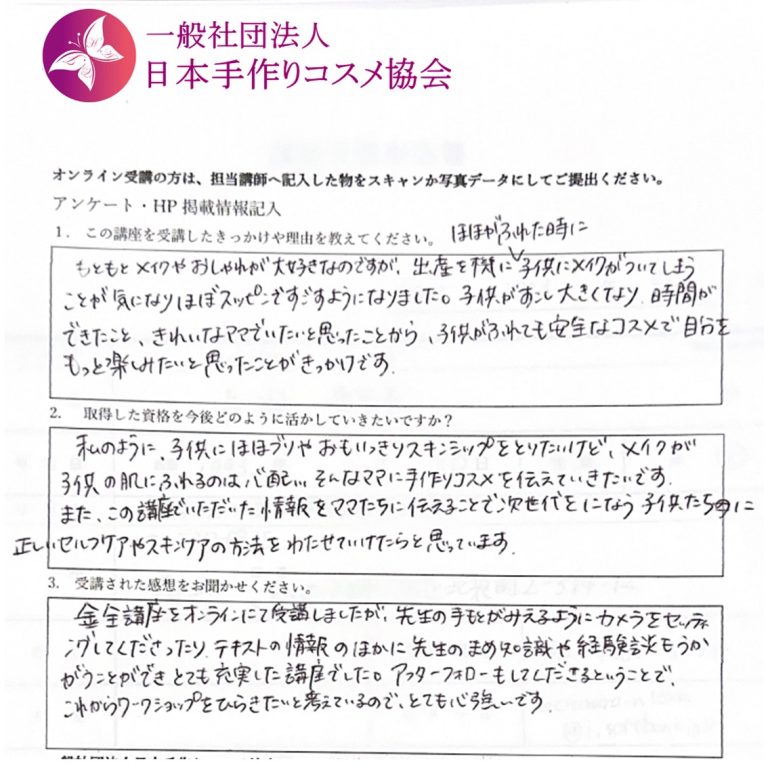 一般社団法人
日本手作りコスメ協会
オンライン受講の方は、担当講師へ記入した物をスキャンか写真データにしてご提出ください。
アンケート・HP 掲載情報記入
1. この講座を受講したきっかけや理由を教えてください。
ほほがふれた時に
もともとメイクやおしゃれが大好きなのですが、出産を機に子供にメイクがついてしまう
ことが気になりほぼスッピンですごすようになりました。子供が少し大きくなり、時間が
できたこと、きれいなママでいたいと思ったことから、子供がふれても安全なコスメで自分を
もっと楽しみたいと思ったことがきっかけです。
2. 取得した資格を今後どのように活かしていきたいですか？
私のように、子供にほほズリやおもいっきりスキンシップをとりたいけど、メイクが
子供の肌にふれるのは心配、、そんなママに手作りコスメを伝えていきたいです。
また、この講座でいただいた情報をママたちに伝えることで次世代をになう子供たちに
正しいセルフケアやスキンケアの方法をわたせていけたらと思っています。
3. 受講された感想をお聞かせください。
全講座をオンラインにて受講しましたが、先生の手もとがみえるようにカメラをセッティ
ングしてくださったり、テキストの情報のほかに先生のまめ知識や経験談もうか
がうことができとても充実した講座でした。アフターフォローもしてくださるということで、
これからワークショップをひらきたいと考えているので、とても心強いです。